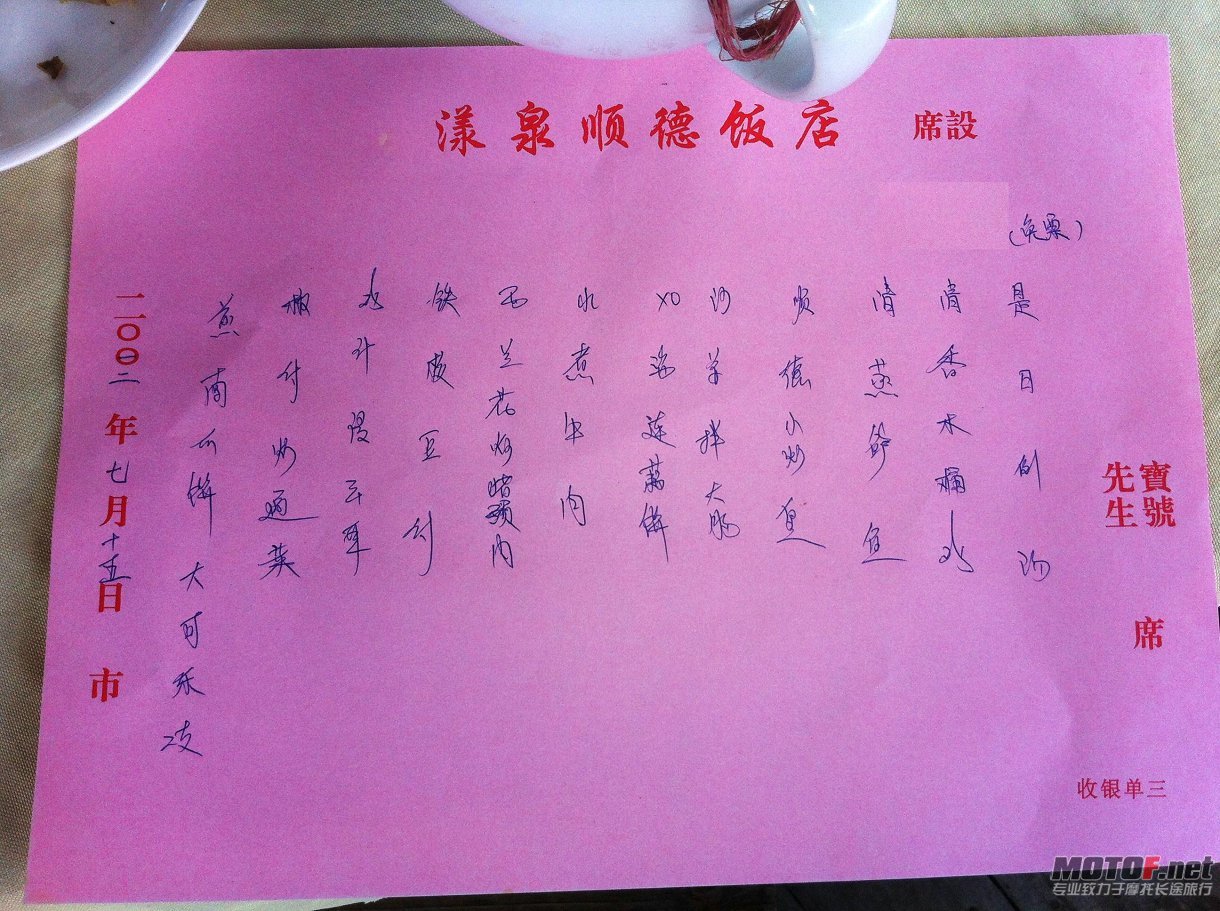 漾泉顺德饭店 席設
(免票)
寶號
先生
席
是日例汤
清香水
清蒸鲈鱼
顺德小炒皇
沙羊拌大肠
XO 酱莲藕饼
水煮牛肉
西兰花炒猪颈肉
铁板豆
椒付炒通菜
蒸南瓜饼 大可乐 2支
二〇〇二年七月十五日 市
收银单三
MOTOF.net
专业致力于摩托长途旅行